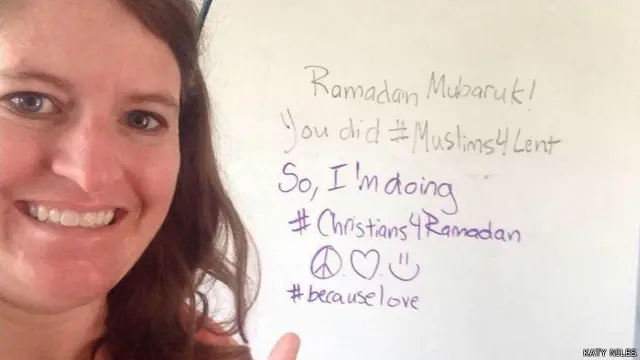 Ramadan Mubaruk!
You did #Muslims4Lent
So, I'm doing
#Christians4Ramadan
#becauselove
KATY NILES